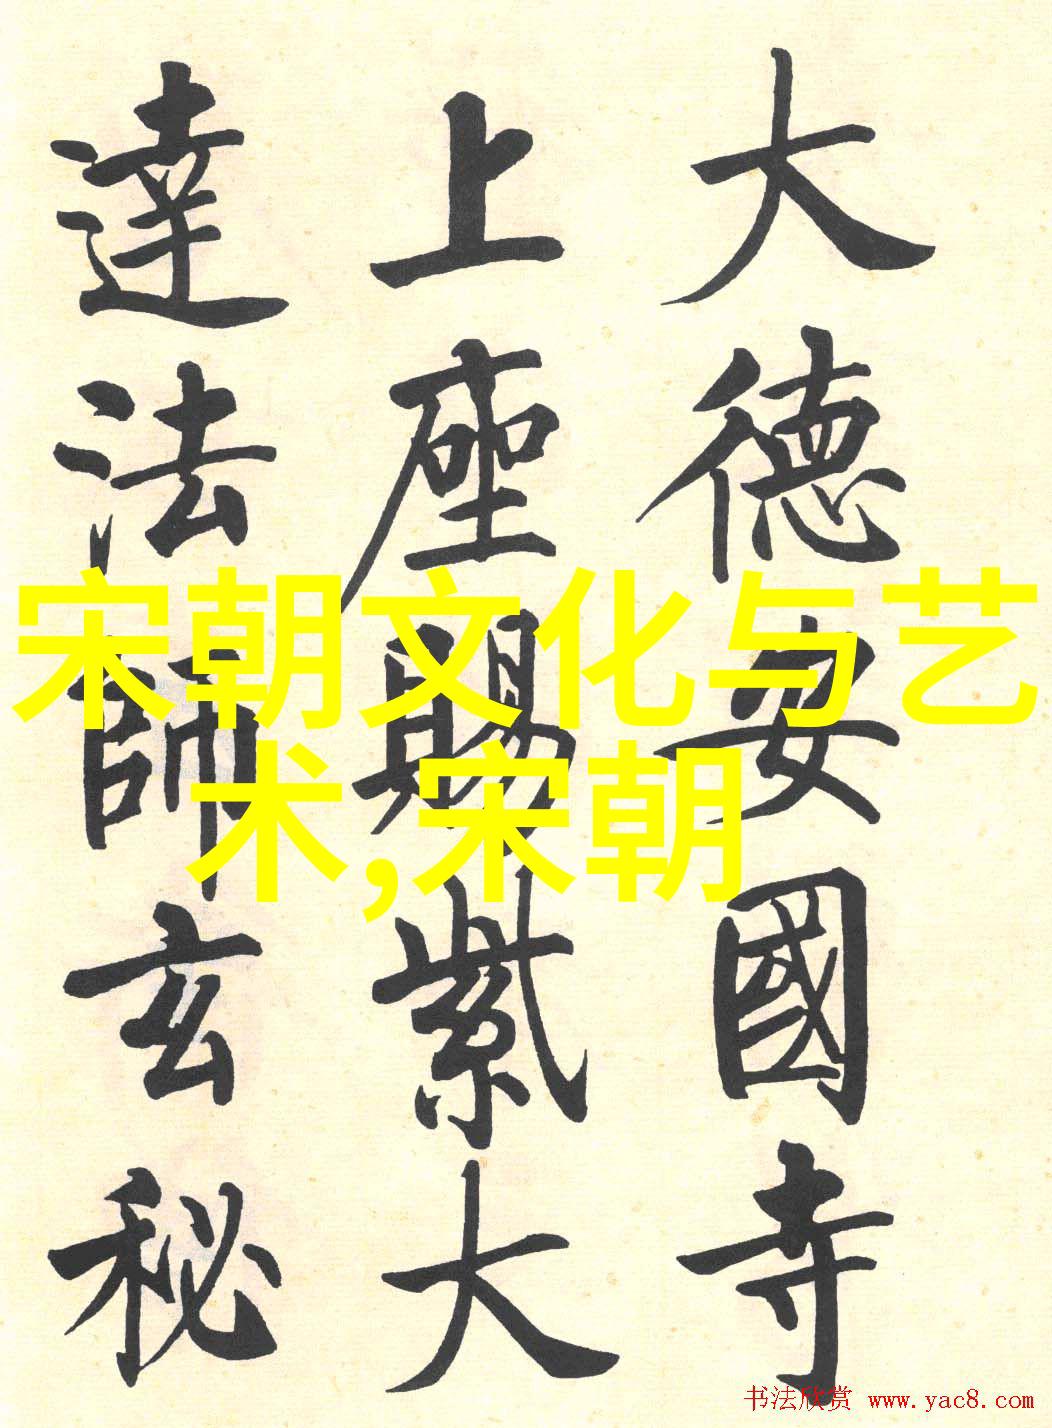 大德安國寺
上座賜紫大
達法師玄秘
宋朝文化与艺
术,宋朝
书法欣赏 www.yac8.com